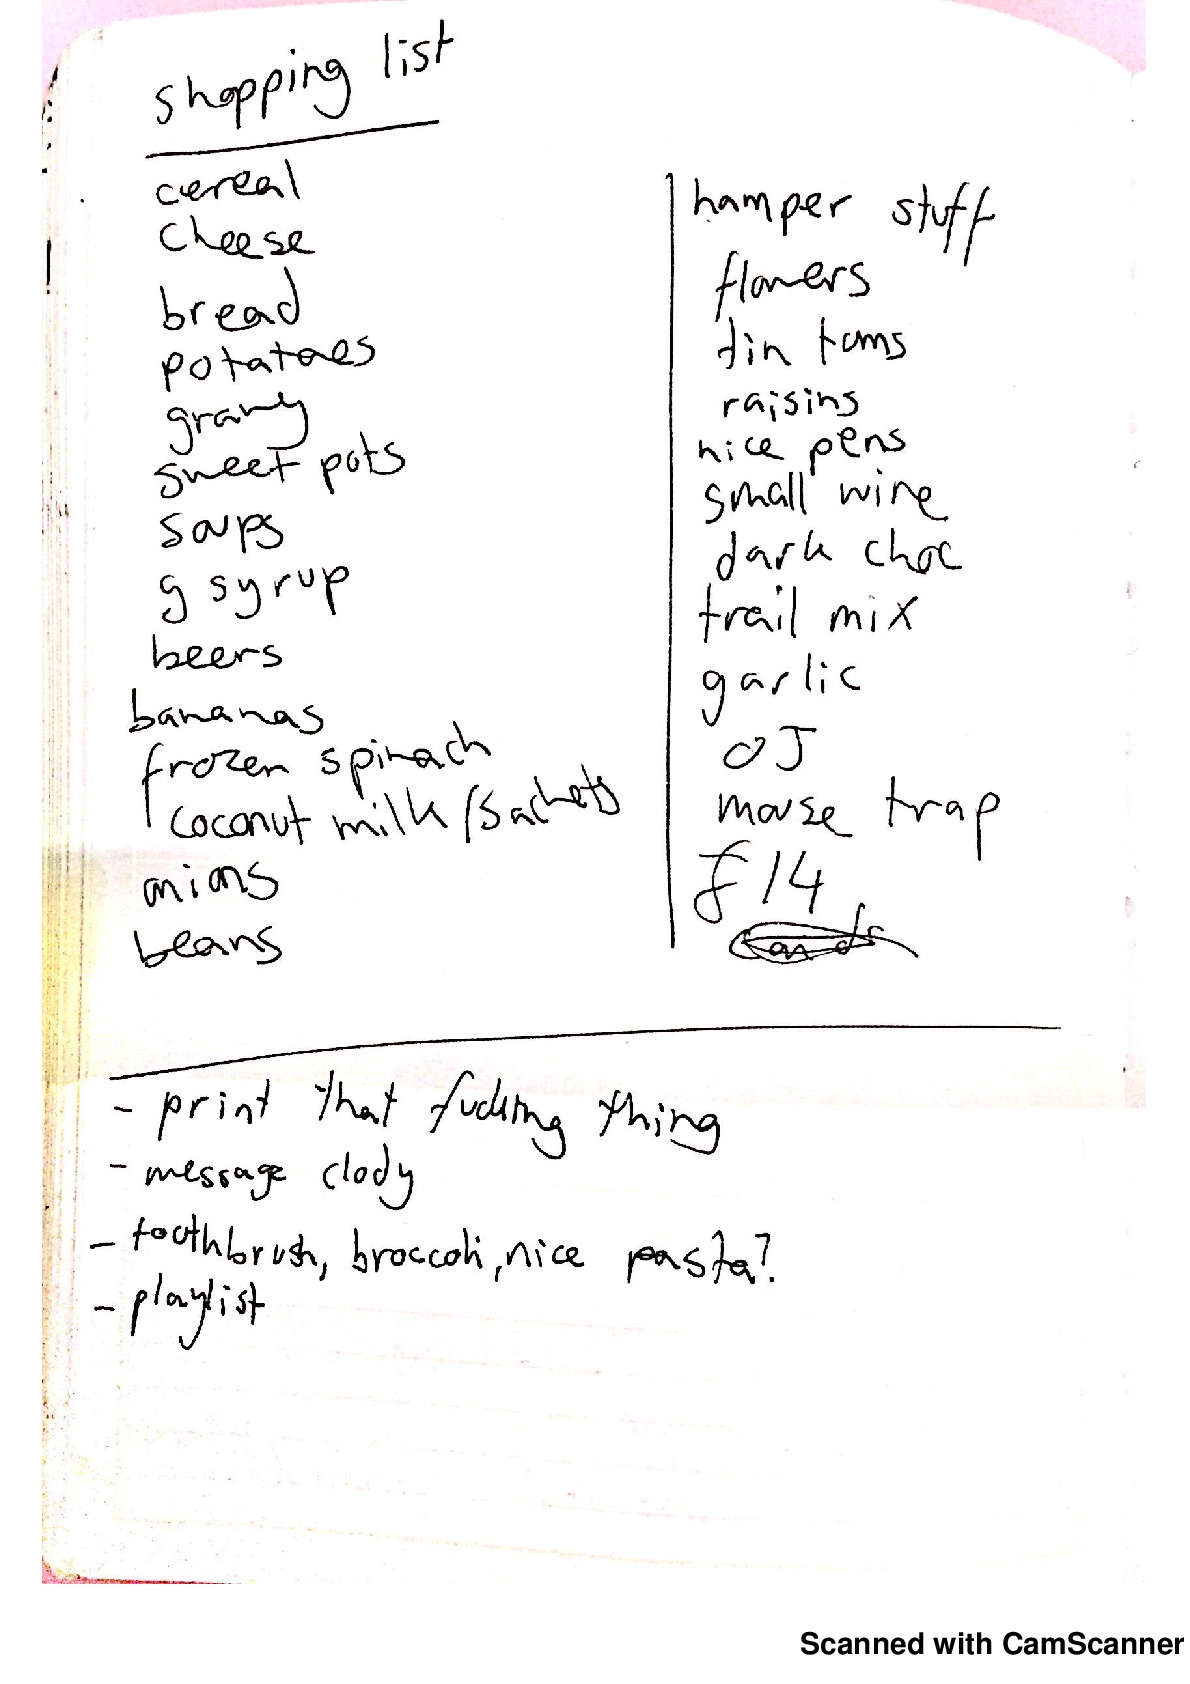 shopping list
cereal
cheese
bread
potatoes
gravy
sweet pots
soups
g syrup
beers
bananas
frozen spinach
coconut milk/sachets
onions
beans
hamper stuff
flowers
tin toms
raisins
nice pens
small wine
dark choc
trail mix
garlic
OJ
mouse trap
£14
- print that fucking thing
- message clody
- toothbrush, broccoli, nice pasta?
- playlist
Scanned with CamScanner